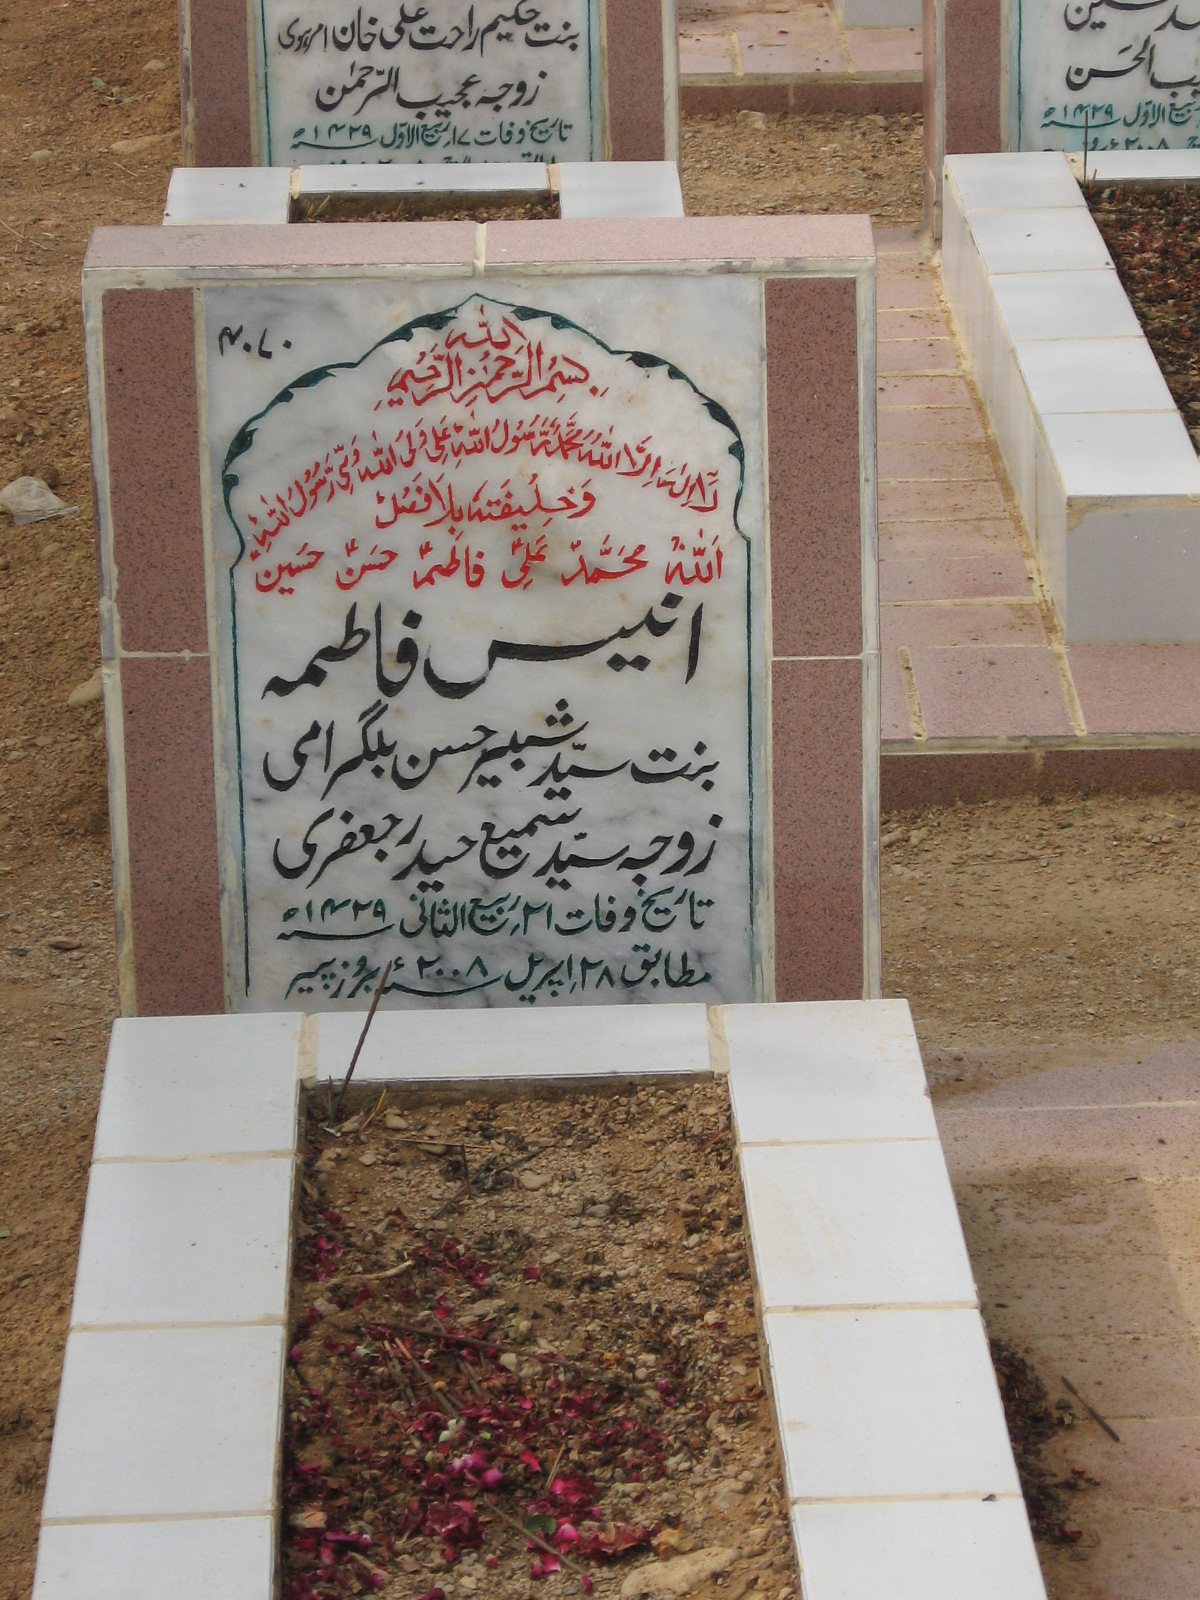 بنت حکیم راحت علی خان امروہوی
زوجہ عجیب الرّحمٰن
تاریخ وفات ۱۷؍ربیع الاوّل ۱۴۲۹ھ
ربیع الاوّل ۱۴۲۹ھ
۲۰۰۸ء
۴۰۷۰
بِسْمِ اللّٰہِ الرَّحْمٰنِ الرَّحِیْمِ
لَآ اِلٰہَ اِلَّا اللّٰہُ مُحَمَّدٌ رَّسُوْلُ اللّٰہِ عَلِیٌّ وَلِیُّ اللّٰہِ وَصِیُّ رَسُوْلِ اللّٰہِ
وَخَلِیْفَتُہٗ بِلَا فَصْلٍ
اَللّٰہُ مُحَمَّدؐ عَلِیؑ فاطمہؑ حَسَنؑ حُسَینؑ
انیس فاطمہ
بنت سیّد شبیر حسن بلگرامی
زوجہ سیّد سمیع حیدر جعفری
تاریخ وفات ۲۱؍ربیع الثانی ۱۴۲۹ھ
مطابق ۲۸؍اپریل ۲۰۰۸ء بروز پیر